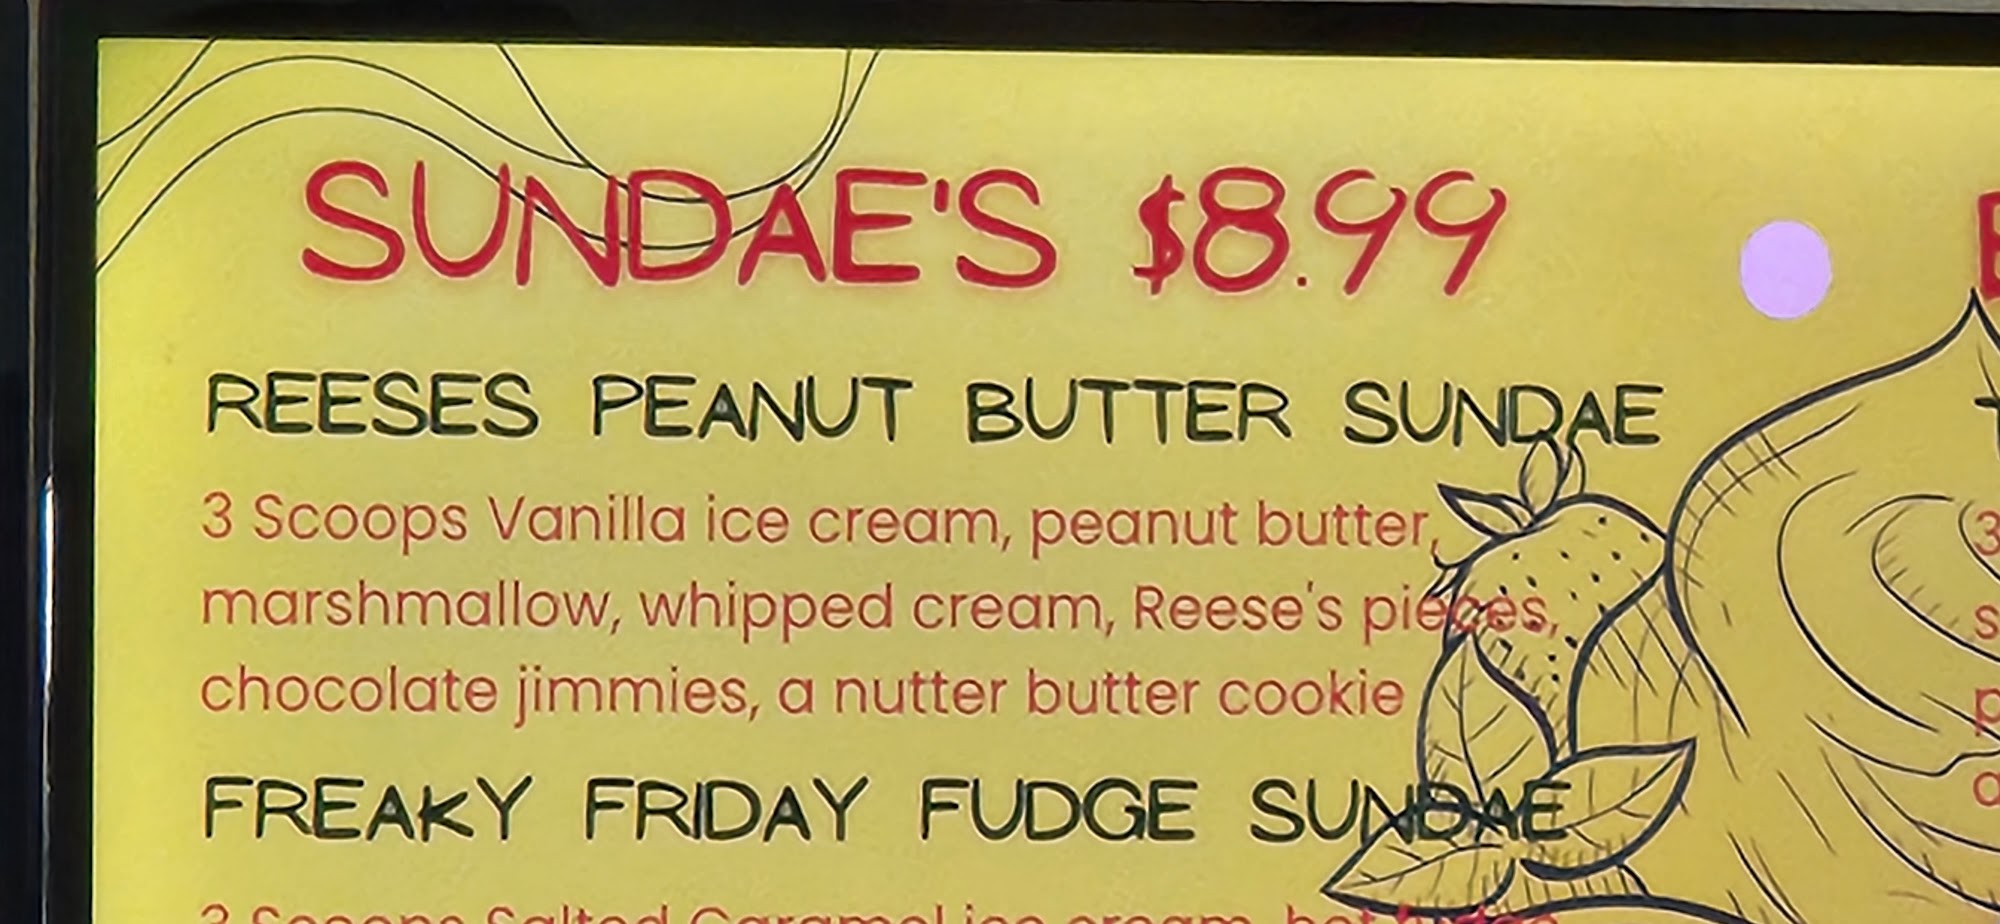 SUNDAE'S $8.99
REESES PEANUT BUTTER SUNDAE
3 Scoops Vanilla ice cream, peanut butter,
marshmallow, whipped cream, Reese's pieces,
chocolate jimmies, a nutter butter cookie
FREAKY FRIDAY FUDGE SUNDAE
3 Scoops Salted Caramel ice cream, hot fudge